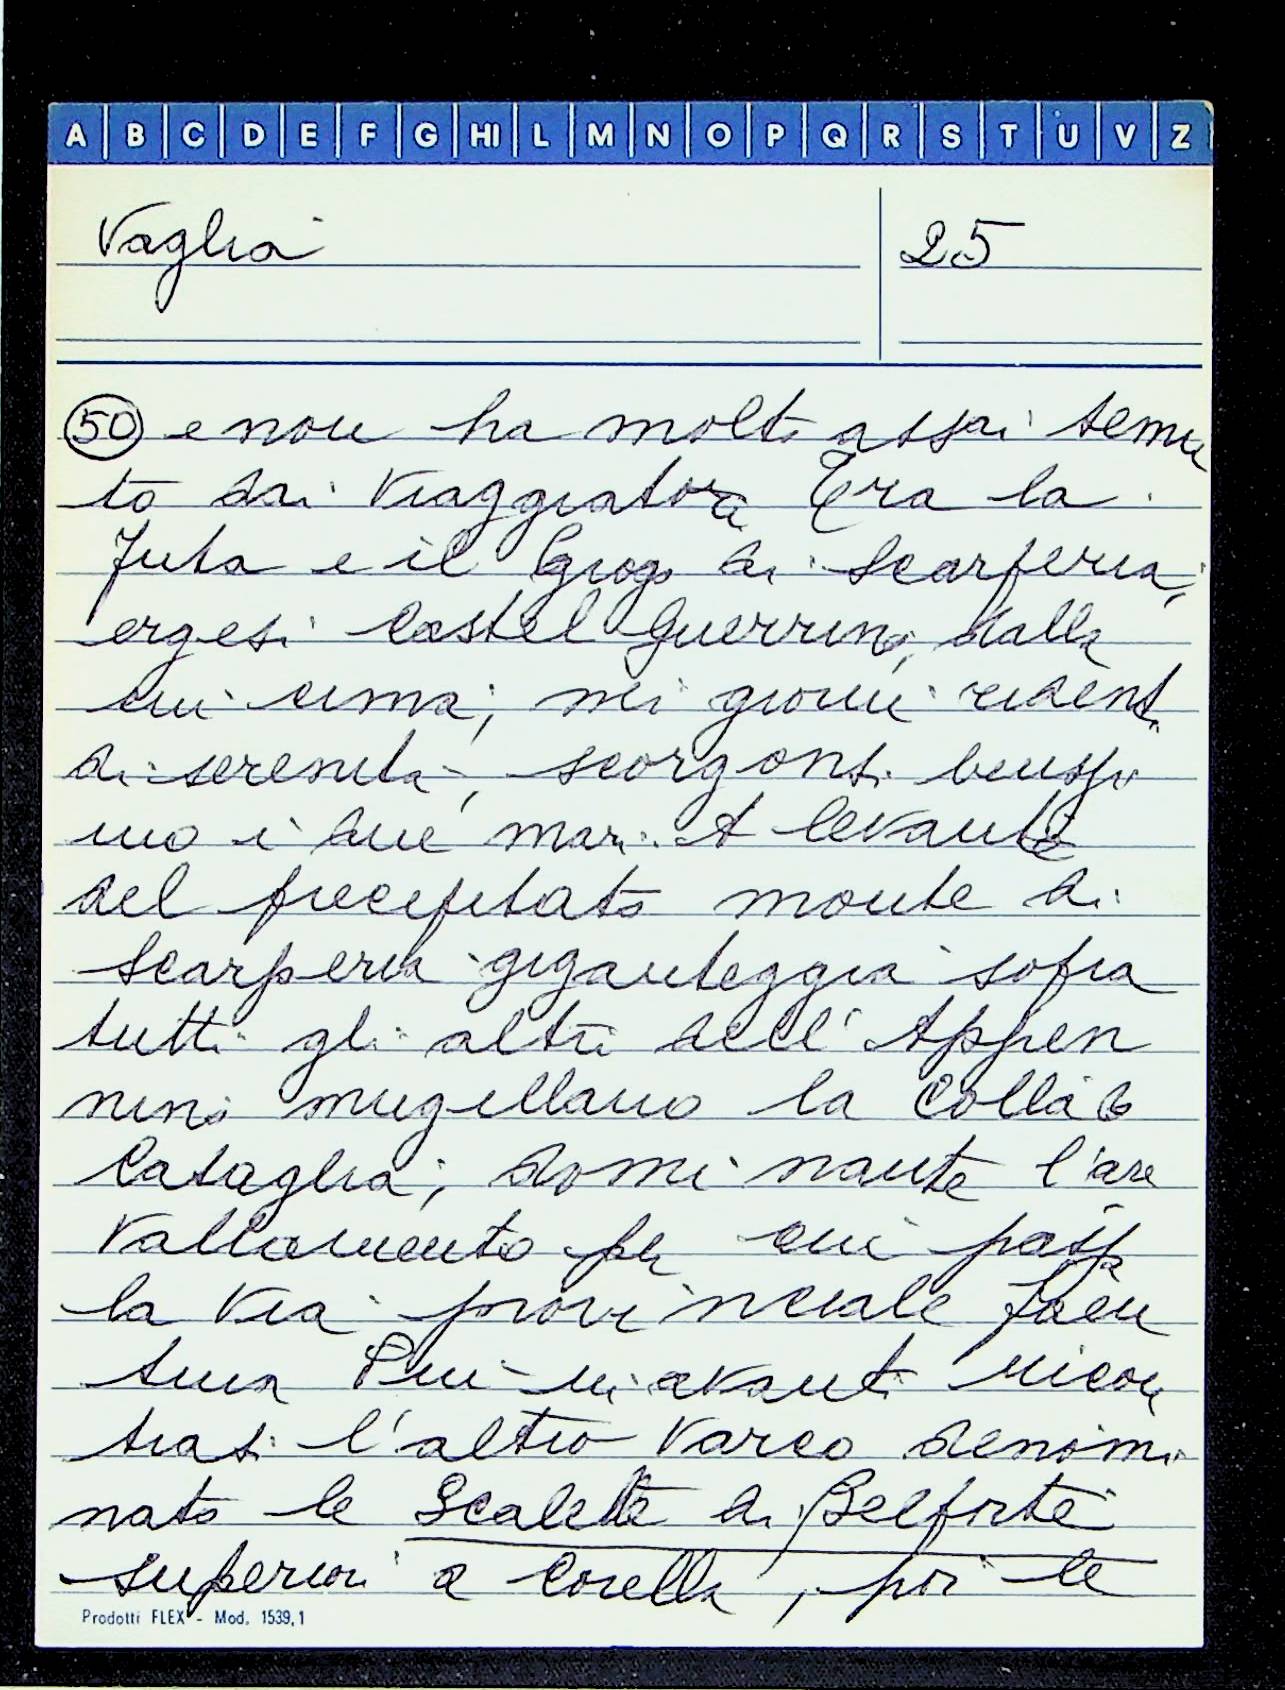 A B C D E F G HI L M N O P Q R S T U V Z
Vaglia 25
50 e non ha molto assai temu
to dai viaggiatori Era la
Futa e il Giogo di Scarperia,
ergesi Castel Guerrino, dalla
cui cima, nei giorni rident
di serenità, scorgonsi benissi
mo i due mari. A levante
del precipitato monte di
Scarperia giganteggia sopra
tutti gli altri dell'Appen
nino mugellano la Colla di
Casaglia, dominante l'avvallamento per cui passa
la via provinciale Faen
tina Più in avanti incon
trasi l'altro varco denomi
nato le Scalette di Belforte
superiori a Corella, poi le
Prodotti FLEX - Mod. 1539,1